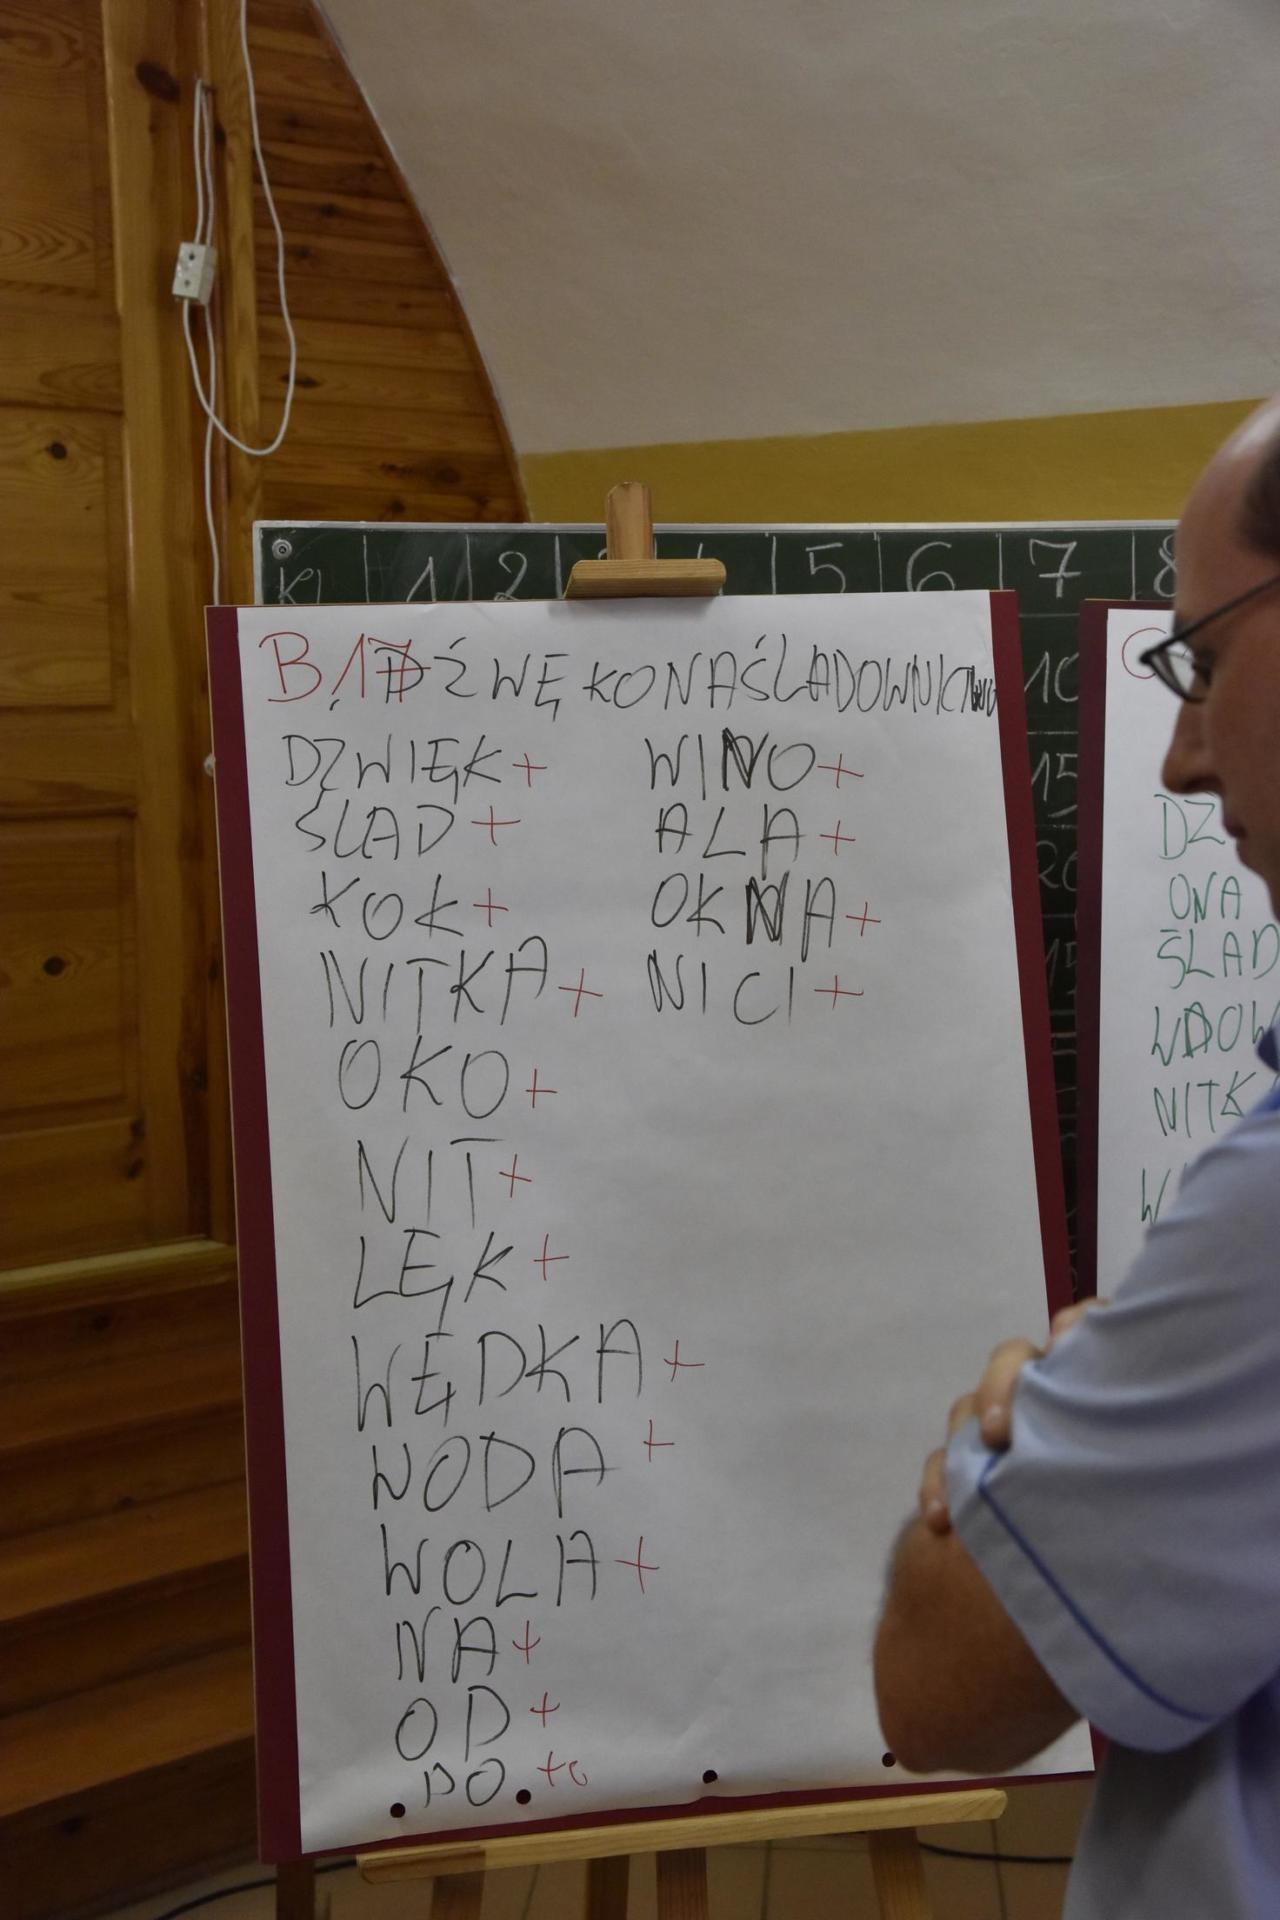 KL 1 2 3 4 5 6 7 8
B. 17 DŹWĘKONAŚLADOWNICTWO
DZWIĘK +
ŚLAD +
KOK +
NITKA +
OKO +
NIT +
LĘK +
WĘDKA +
WODA +
WOLA +
NA +
OD +
DO +
WINO +
ALA +
OKNA +
NICI +
10
15
20
15
C
DZ
ONA
ŚLAD
WDOW
NITK
W